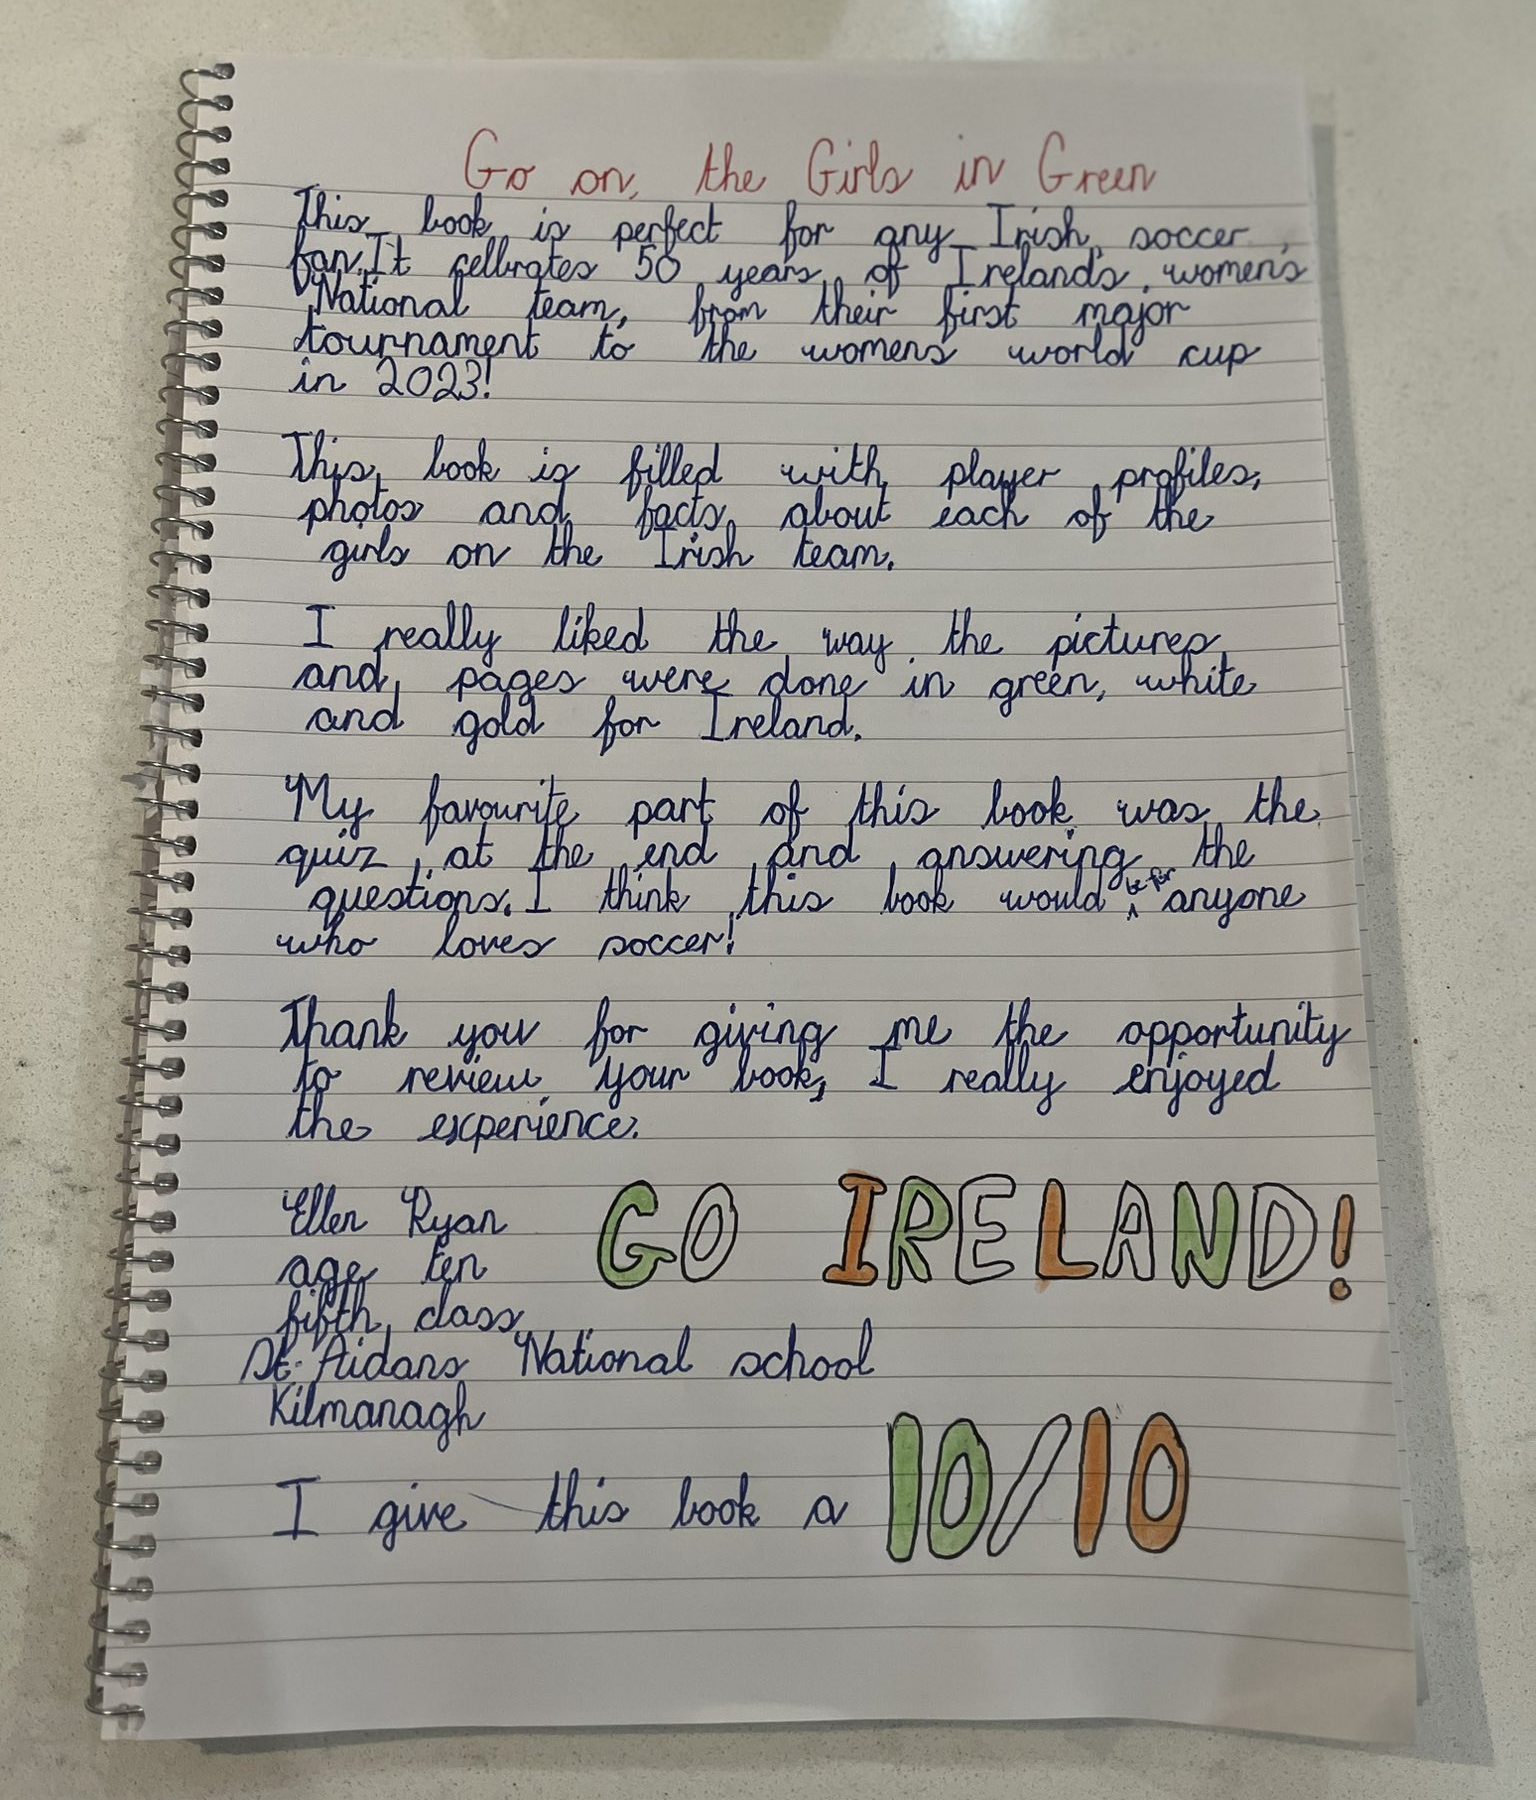 Go on, the Girls in Green
This book is perfect for any Irish soccer
fan. It cellbrates 50 years of Ireland's women's
National team, from their first major
tournament to the womens world cup
in 2023!
This book is filled with player profiles,
photos and facts about each of the
girls on the Irish team.
I really liked the way the pictures
and pages were done in green, white
and gold for Ireland.
My favourite part of this book was the
quiz at the end and answering the
questions. I think this book would be for anyone
who loves soccer!
Thank you for giving me the opportunity
to review your book, I really enjoyed
the experience.
Ellen Ryan
GO IRELAND!
age ten
fifth class
St. Aidans National school
Kilmanagh
I give this book a 10/10